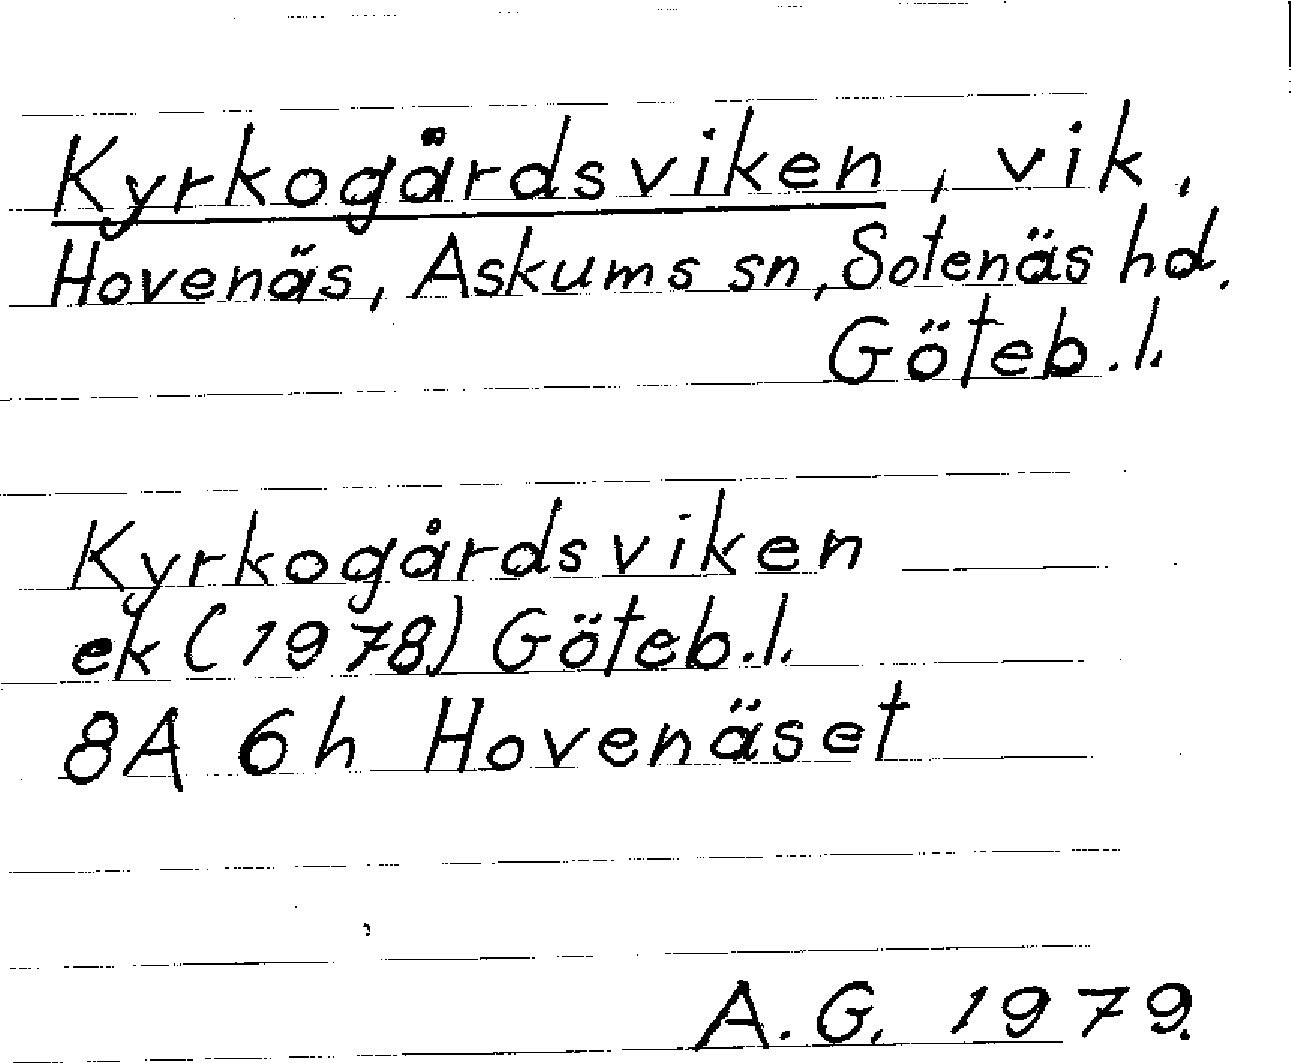 Kyrkogårdsviken, vik,
Hovenäs, Askums sn, Sotenäs hd.
Göteb. l.
Kyrkogårdsviken
ek (1978) Göteb. l.
8A 6h Hovenäset
A. G. 1979.